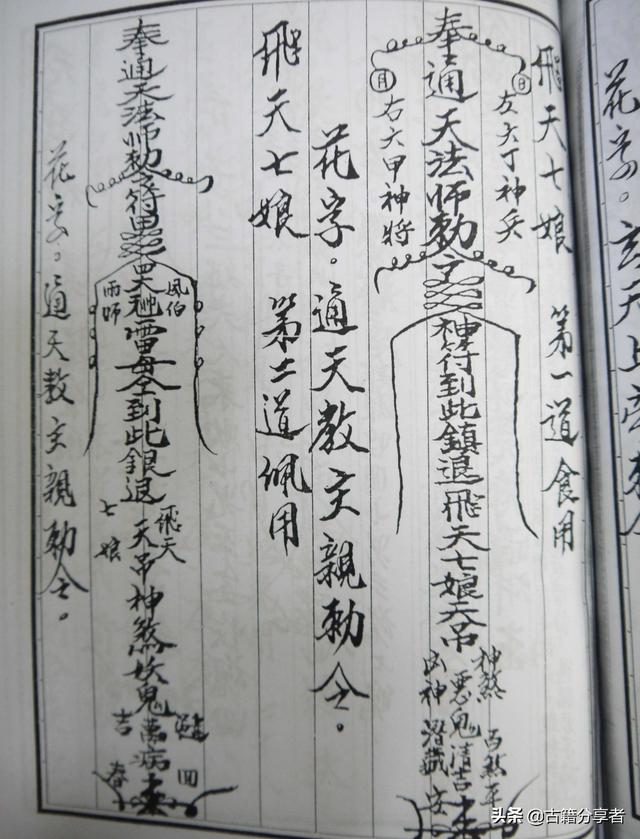 飛天七娘 第一道食用
奉通天法師勅令
日 左六丁神兵
月 右六甲神將
神符到此鎮退飛天七娘天吊
神煞 惡鬼清吉 百煞
凶神 潛藏 安
花字。通天教主親勅令。
飛天七娘 第二道佩用
奉通天法師勅令符
風伯
雨師
雷母令到此銀退
飛天
七娘
天吊神煞妖鬼萬病
吉
春 回
花字。通天教主親勅令。
花字。玄天上帝勅
头条 @古籍分享者